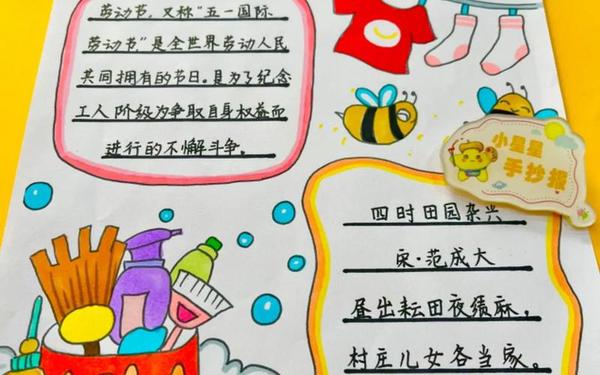 劳动节，又称“五一国际
劳动节”是全世界劳动人民
共同拥有的节日。是为了纪念
工人阶级为争取自身权益而
进行的不懈斗争。
小星星
手抄报
四时田园杂兴
宋·范成大
昼出耘田夜绩麻，
村庄儿女各当家。